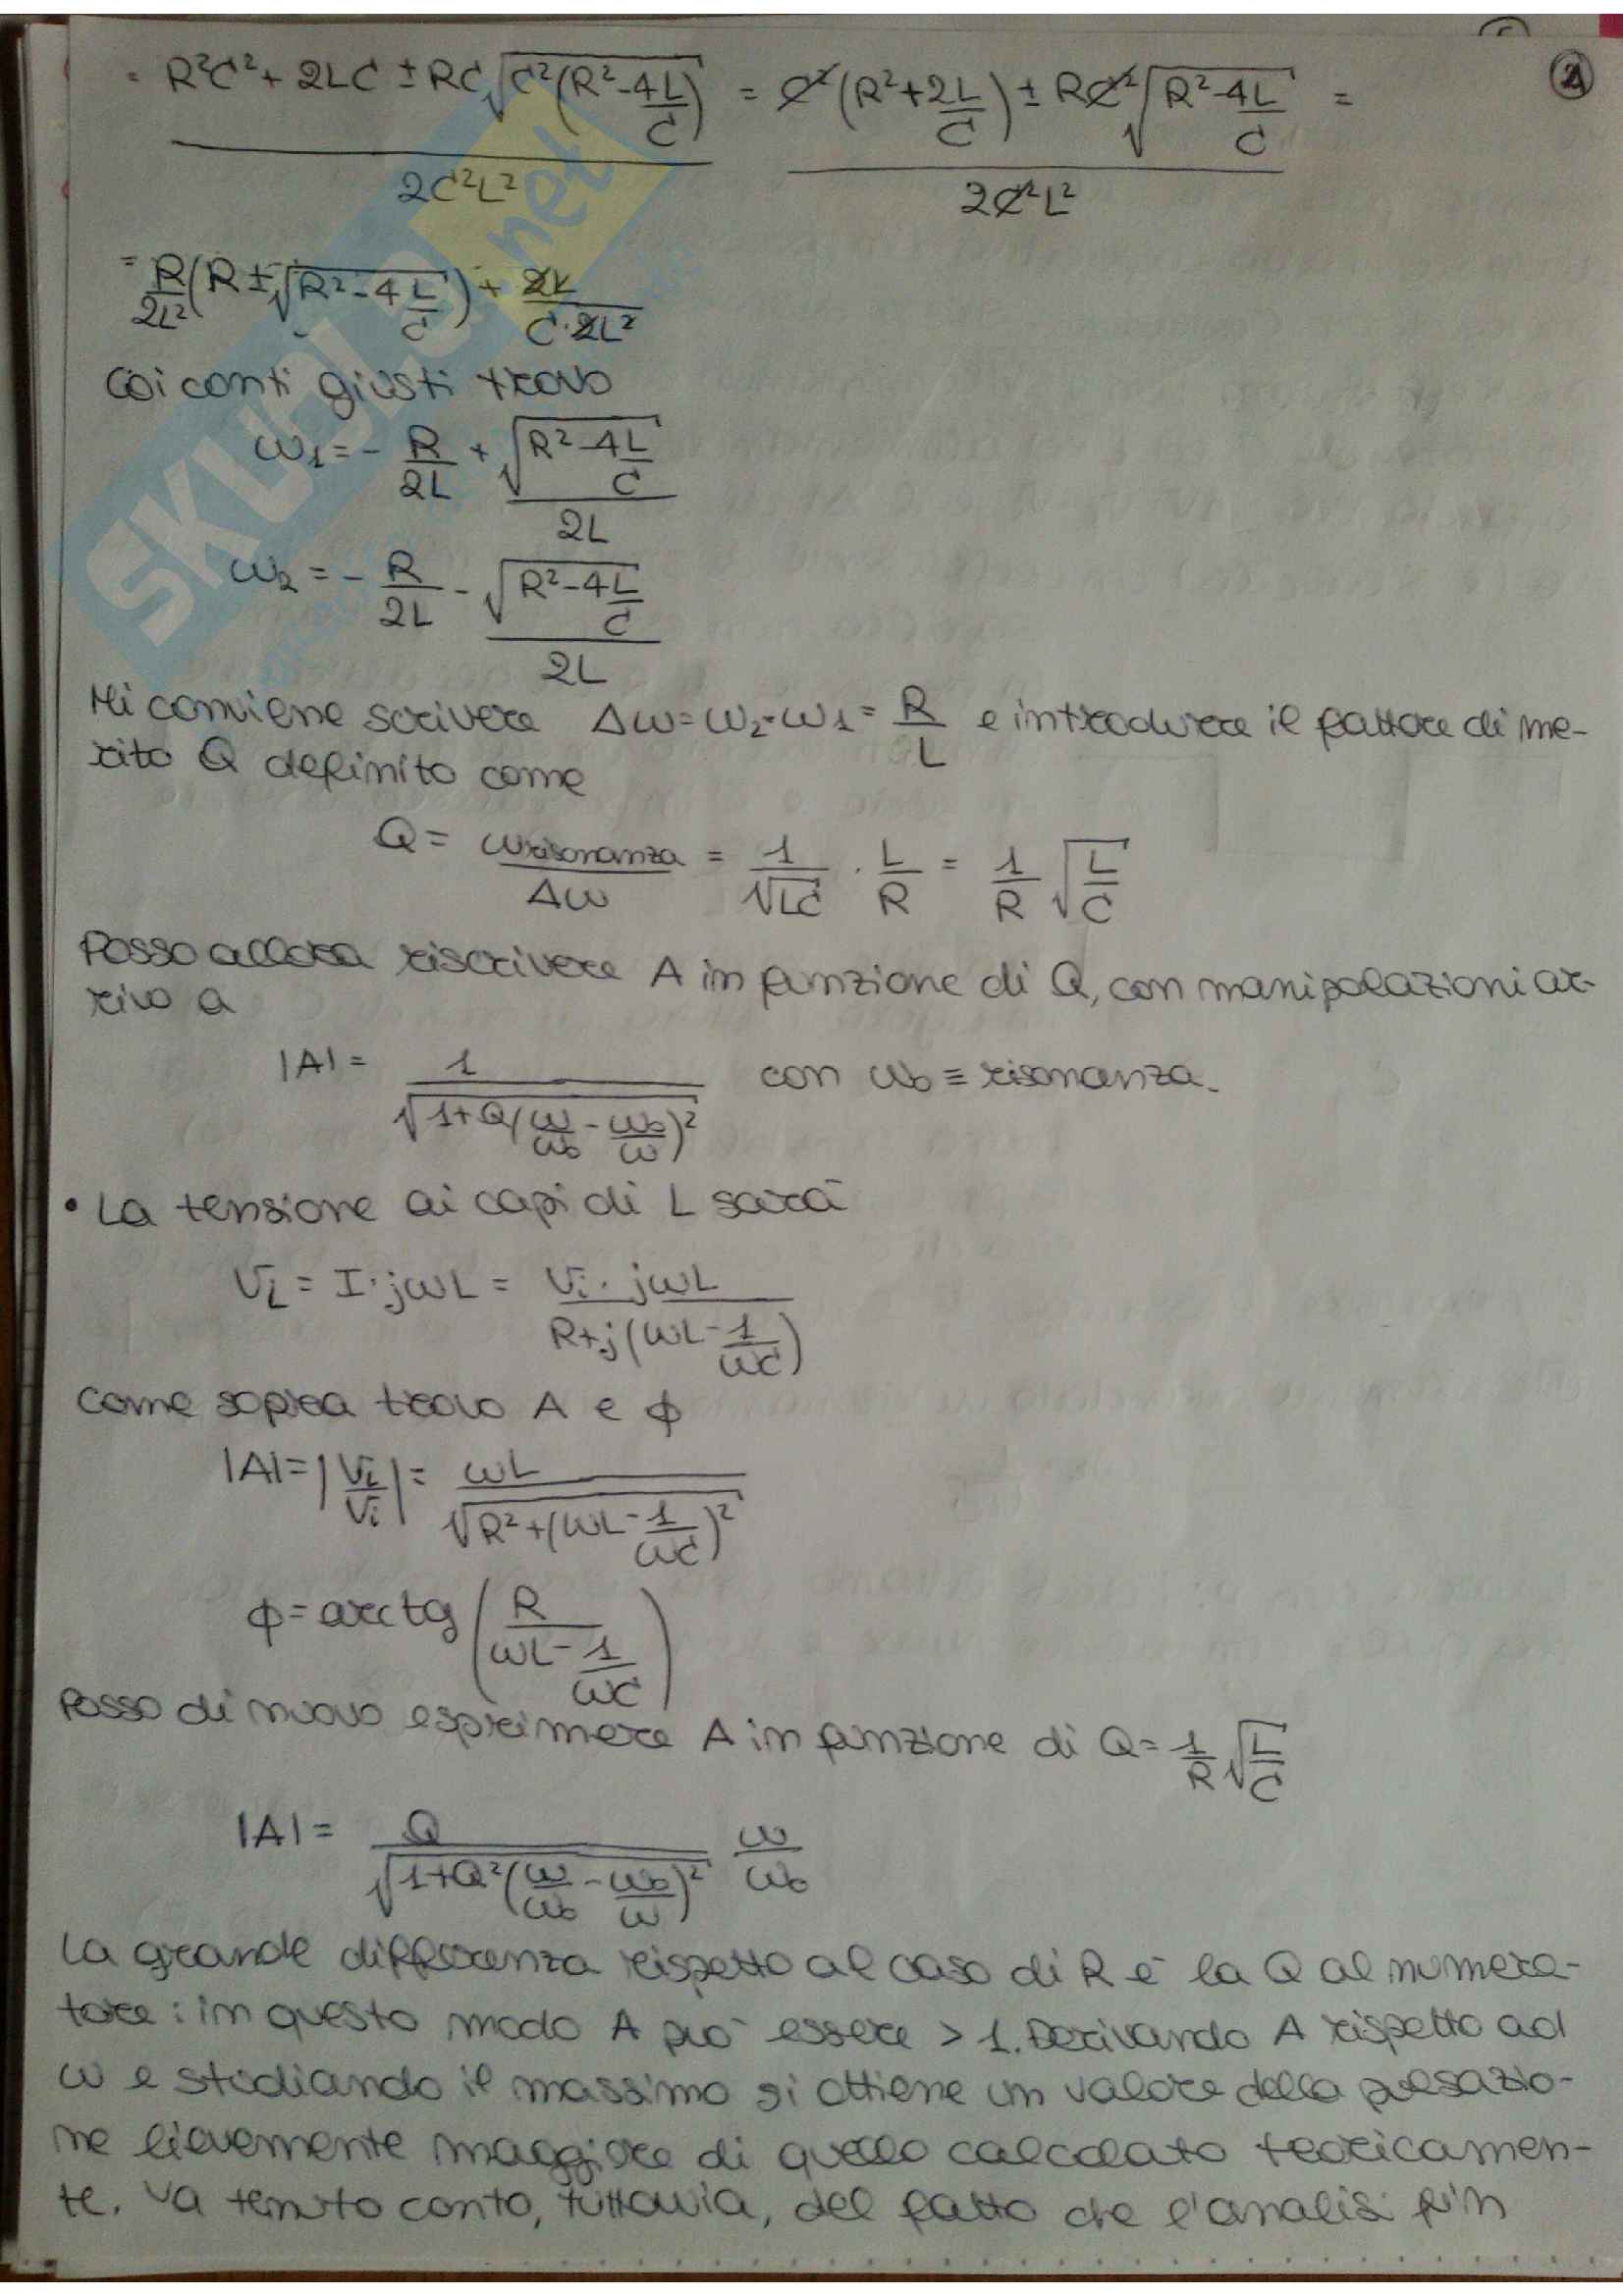 2
= R²C²+2LC ± RC√(C²(R²-4L/C)) / 2C²L² = C²(R²+2L/C) ± RC²√(R²-4L/C) / 2C²L² =
= R/2L² (R ± √(R²-4L/C)) + 2L/C·2L²
Coi conti giusti trovo
ω₁ = - R/2L + √(R²-4L/C) / 2L
ω₂ = - R/2L - √(R²-4L/C) / 2L
Mi conviene scrivere Δω=ω₂-ω₁= R/L e introdurre il fattore di me-
rito Q definito come
Q = ωrisonanza/Δω = 1/√LC · L/R = 1/R √(L/C)
Posso allora riscrivere A in funzione di Q, con manipolazioni ar-
rivo a
|A| = 1/√(1+Q(ω/ω₀ - ω₀/ω)²) con ω₀ ≡ risonanza.
• La tensione ai capi di L sarà
V_L = I·jωL = Vi·jωL / R+j(ωL-1/ωC)
Come sopra trovo A e ϕ
|A| = |V_L/Vi| = ωL / √(R²+(ωL-1/ωC)²)
ϕ = arctg(R / ωL-1/ωC)
Posso di nuovo esprimere A in funzione di Q= 1/R √(L/C)
|A| = Q/√(1+Q²(ω/ω₀ - ω₀/ω)²) ω/ω₀
La grande differenza rispetto al caso di R è la Q al numera-
tore: in questo modo A può essere > 1. Derivando A rispetto ad
ω e studiando il massimo si ottiene un valore della pulsazio-
ne lievemente maggiore di quello calcolato teoricamen-
te. Va tenuto conto, tuttavia, del fatto che l'analisi fin
SKUOLA.net